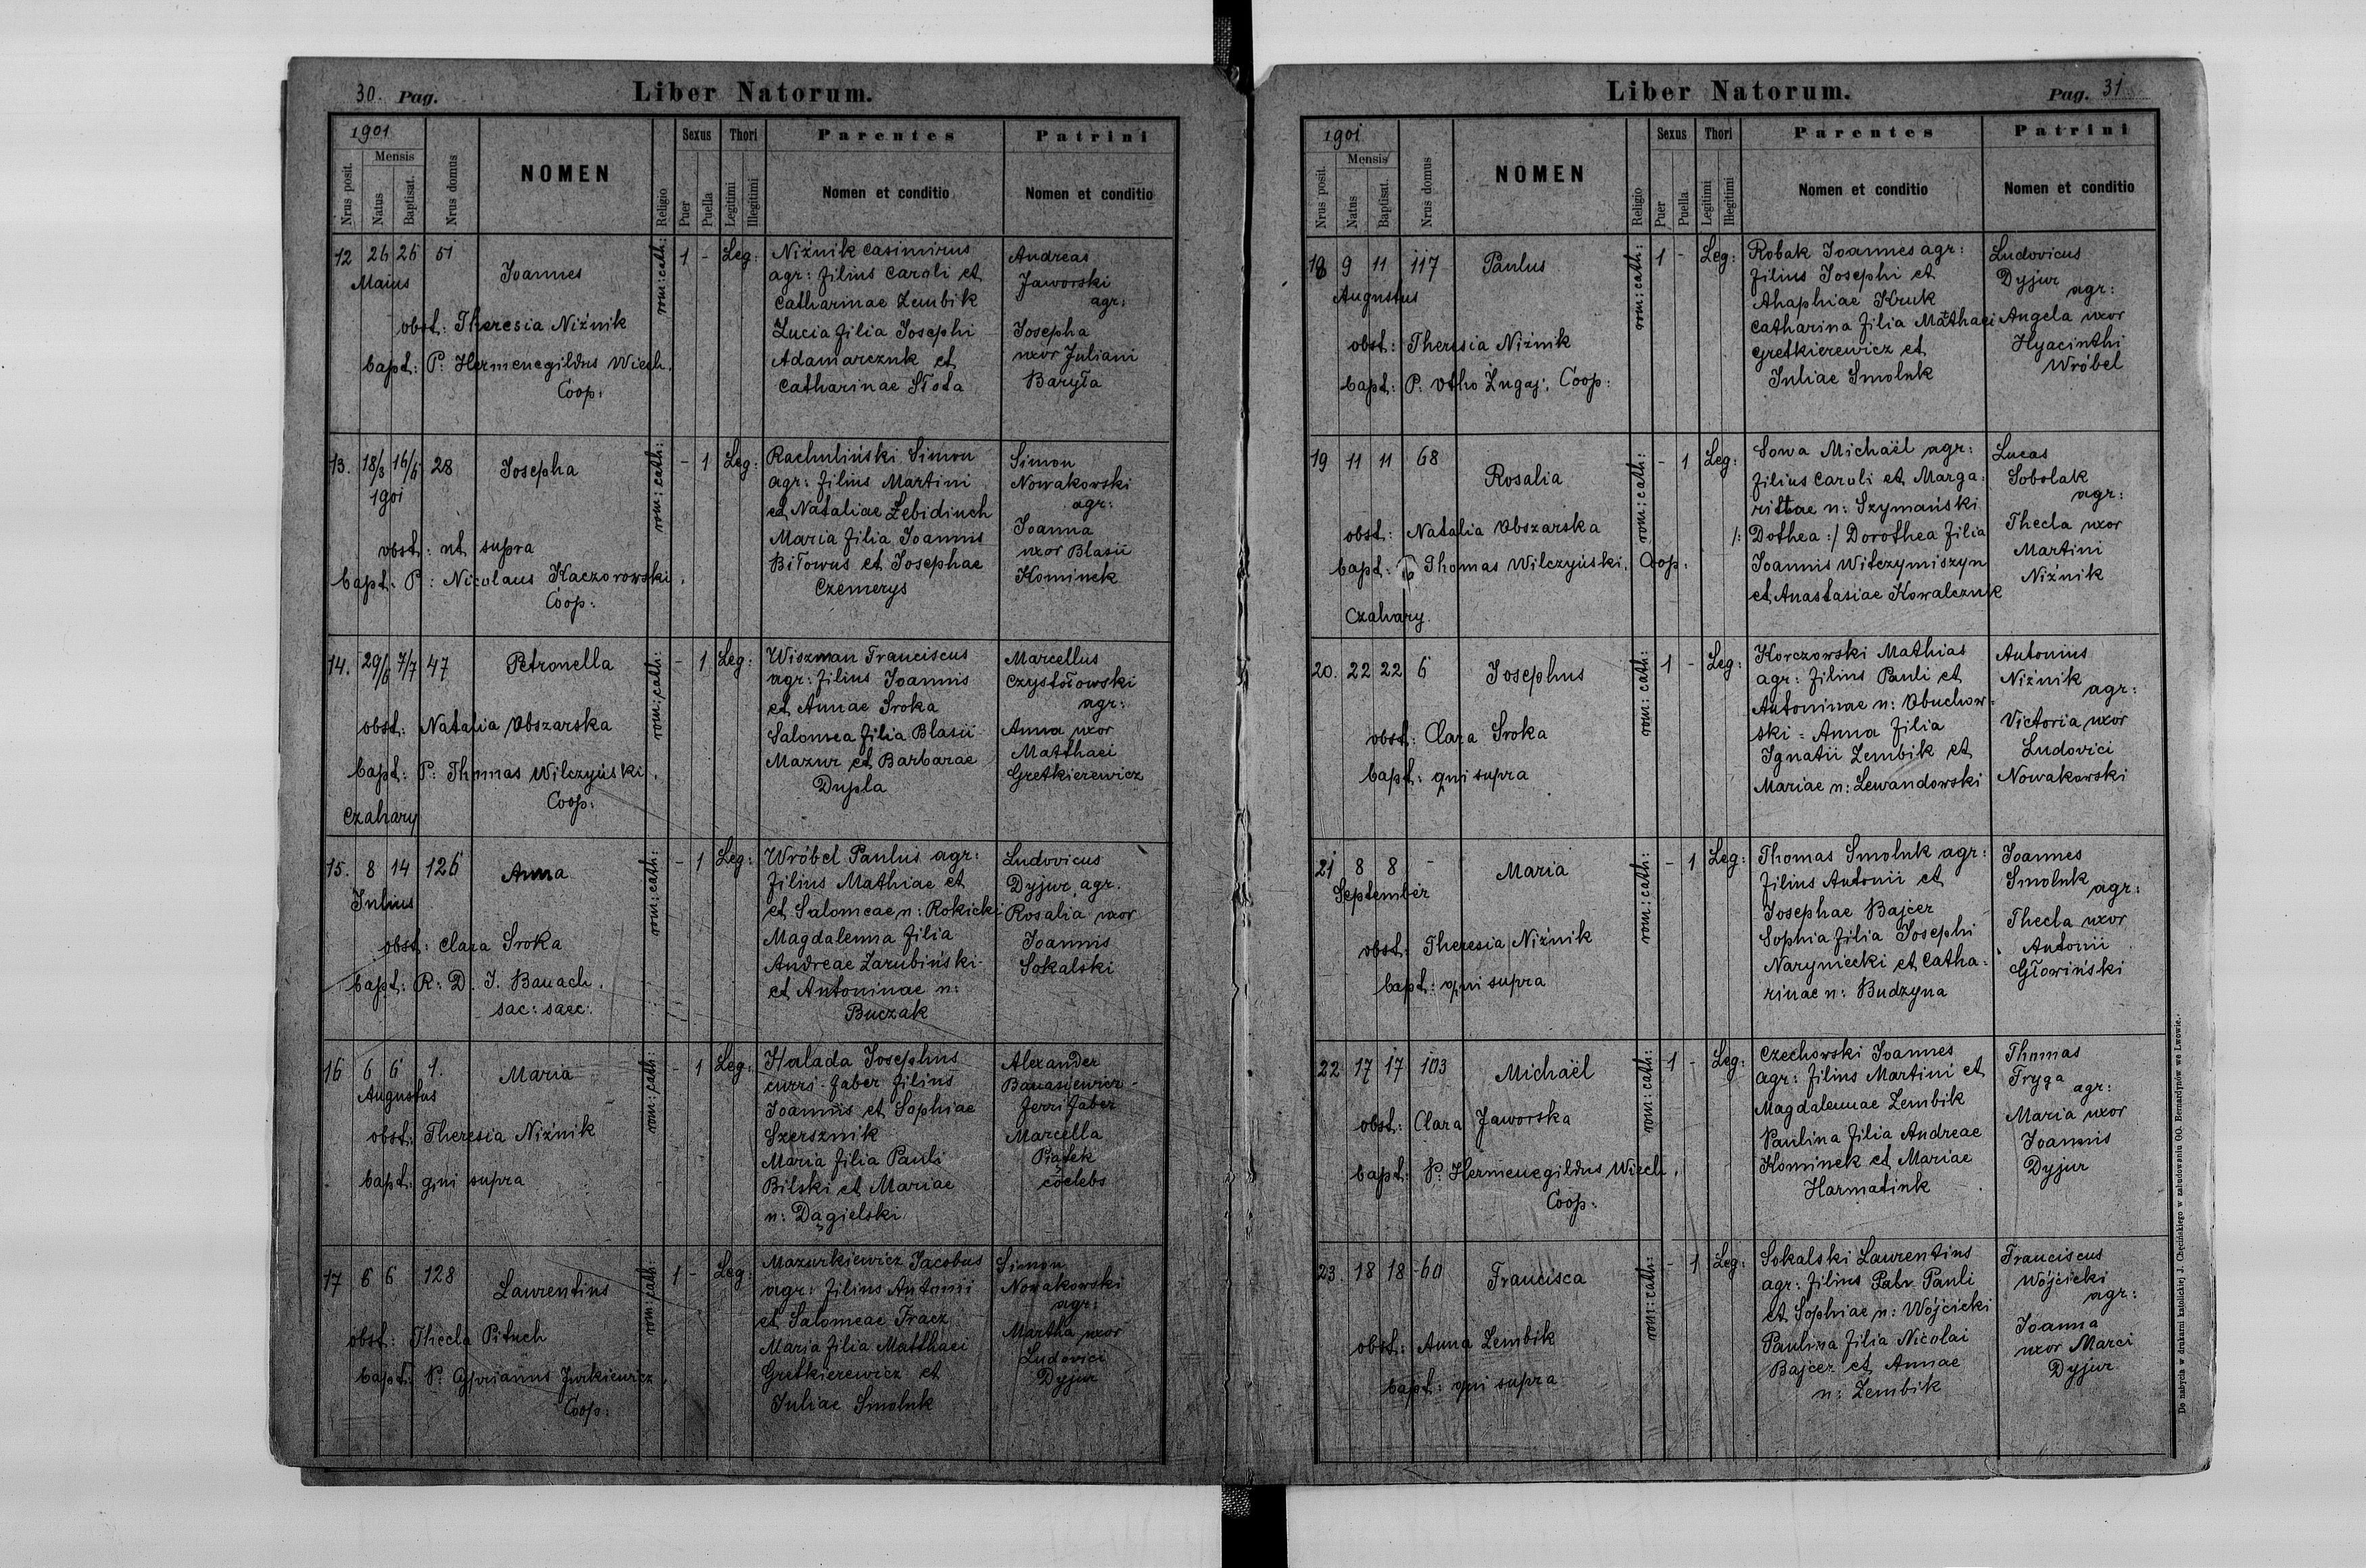 30. Pag.
Liber Natorum.
1901
Nrus posit.
Mensis
Natus
Baptisat.
Nrus domus
NOMEN
Religio
Sexus
Puer
Puella
Thori
Legitimi
Illegitimi
Parentes
Nomen et conditio
Patrini
Nomen et conditio
12 26 26 51
Maius
Joannes
obst: Theresia Niźnik
bapt: P: Hermenegildus Wiech.
Coop:
rom: cath:
1 - Leg:
Niźnik Casimirus
agr: filius Caroli et
Catharinae Zembik
Lucia filia Josephi
Adamarczuk et
Catharinae Słota
Andreas
Jaworski
agr:
Josepha
uxor Juliani
Baryła
13. 18/3 16/6 28
1901
Josepha
obst: ut supra
bapt: P: Nicolaus Kaczorowski.
Coop:
rom: cath:
- 1 Leg:
Rachuliński Simon
agr: filius Martini
et Nataliae Lebidiuch
Maria filia Joannis
Biłowus et Josephae
Czemerys
Simon
Nowakowski
agr:
Joanna
uxor Blasii
Kominek
14. 29/6 7/7 47
Petronella
obst: Natalia Obszarska
bapt: P: Thomas Wilczyński.
Coop:
Czahary
rom: cath:
- 1 Leg:
Wiszman Franciscus
agr: filius Joannis
et Annae Sroka
Salomea filia Blasii
Mazur et Barbarae
Dupla
Marcellus
Czystołowski
agr:
Anna uxor
Matthaei
Gretkierewicz
15. 8 14 126
Julius
Anna
obst: Clara Sroka
bapt: R: D. J. Banach.
sac: saec:
rom: cath:
- 1 Leg:
Wróbel Paulus agr:
filius Mathiae et
et Salomeae n: Rokicki
Magdalenna filia
Andreae Zarubiński
et Antoninae n:
Buczak
Ludovicus
Dyjur agr.
Rosalia uxor
Joannis
Sokalski
16 6 6 1.
Augustus
Maria
obst: Theresia Niźnik
bapt: qui supra
rom: cath:
- 1 Leg:
Halada Josephus
curri-faber filius
Joannis et Sophiae
Szersznik
Maria filia Pauli
Bilski et Mariae
n: Dągielski
Alexander
Banasiewicz
ferri faber
Marcella
Piątek
coelebs
17 6 6 128
Laurentius
obst: Thecla Pituch
bapt: P. Cyprianus Jurkiewicz.
Coop:
rom: cath:
1 - Leg:
Mazurkiewicz Jacobus
agr: filius Antonii
et Salomeae Tracz
Maria filia Matthaei
Gretkierewicz et
Juliae Smoluk
Simon
Nowakowski
agr:
Martha uxor
Ludovici
Dyjur
Liber Natorum.
Pag. 31
1901
Nrus posit.
Mensis
Natus
Baptisat.
Nrus domus
NOMEN
Religio
Sexus
Puer
Puella
Thori
Legitimi
Illegitimi
Parentes
Nomen et conditio
Patrini
Nomen et conditio
18 9 11 117
Augustus
Paulus
obst: Theresia Niźnik
bapt: P. Otho Zugaj: Coop:
rom: cath:
1 - Leg:
Robak Joannes agr:
filius Josephi et
Ahaphiae Kruk
Catharina filia Matthaei
Gretkierewicz et
Juliae Smoluk
Ludovicus
Dyjur
agr:
Angela uxor
Hyacinthi
Wróbel
19 11 11 68
Rosalia
obst: Natalia Obszarska
bapt: P Thomas Wilczyński. Coop:
Czahary.
rom: cath:
- 1 Leg:
Sowa Michaël agr:
filius Caroli et Marga-
rittae n: Szymański
/: Dothea :/ Dorothea filia
Joannis Witczymiszyn
et Anastasiae Kowalczuk
Lucas
Sobolak
agr:
Thecla uxor
Martini
Niźnik
20. 22 22 6
Josephus
obst: Clara Sroka
bapt: qui supra
rom: cath:
1 - Leg:
Korczowski Mathias
agr: filius Pauli et
Antoninae n: Obuchow-
ski = Anna filia
Ignatii Zembik et
Mariae n: Lewandowski
Antonius
Niźnik
agr:
Victoria uxor
Ludovici
Nowakowski
21 8 8 -
September
Maria
obst: Theresia Niźnik
bapt: qui supra
rom: cath:
- 1 Leg:
Thomas Smoluk agr:
filius Antonii et
Josephae Bajcer
Sophia filia Josephi
Naryniecki et Catha-
rinae n: Budzyna
Joannes
Smoluk
agr:
Thecla uxor
Antonii
Głowiński
22 17 17 103
Michaël
obst: Clara Jaworska
bapt: P: Hermenegildus Wiech.
Coop:
rom: cath:
1 - Leg:
Czechowski Joannes
agr: filius Martini et
Magdalennae Zembik
Paulina filia Andreae
Kominek et Mariae
Harmatiuk
Thomas
Fryga
agr:
Maria uxor
Joannis
Dyjur
23. 18 18 60
Francisca
obst: Anna Zembik
bapt: qui supra
rom: cath:
- 1 Leg:
Sokalski Laurentius
agr: filius Pauli
et Sophiae n: Wójcicki
Paulina filia Nicolai
Bajcer et Annae
n: Zembik
Franciscus
Wójcicki
agr:
Joanna
uxor Marci
Dyjur
Do nabycia w drukarni katolickiej J. Chęcińskiego w zabudowaniu OO. Bernardynów we Lwowie.